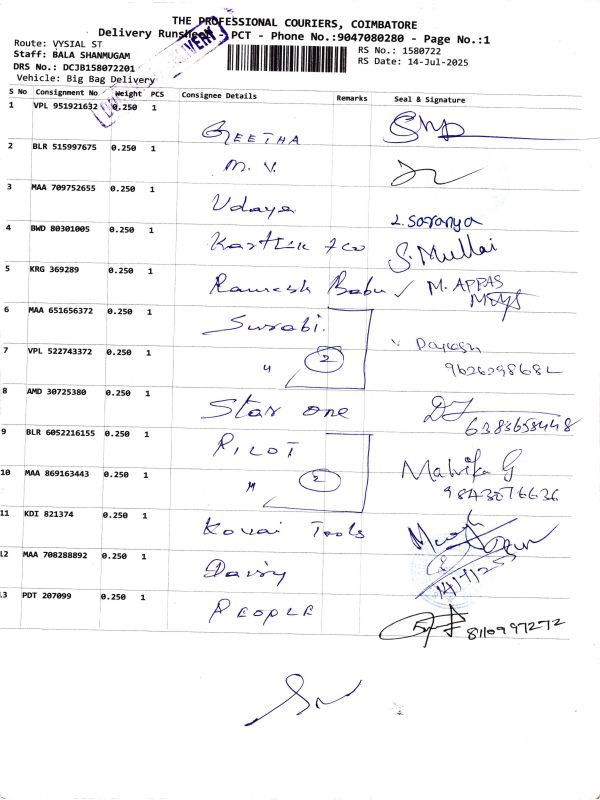 THE PROFESSIONAL COURIERS, COIMBATORE
Delivery Runsheet PCT - Phone No.:9047080280 - Page No.:1
Route: VYSIAL ST
Staff: BALA SHANMUGAM
DRS No.: DCJB158072201
Vehicle: Big Bag Delivery
RS No.: 1580722
RS Date: 14-Jul-2025
DELIVERY
S No Consignment No Weight PCS Consignee Details Remarks Seal & Signature
1 VPL 951921632 0.250 1 GEETHA
2 BLR 515997675 0.250 1 M. V.
3 MAA 709752655 0.250 1 Udaya L. Saranya
4 BWD 80301005 0.250 1 Karthik S. Mullai
5 KRG 369289 0.250 1 Ramesh Babu ✓ M. APPAS
6 MAA 651656372 0.250 1 Surabi.
7 VPL 522743372 0.250 1 " 2
8 AMD 30725380 0.250 1 Star one 6383653448
9 BLR 6052216155 0.250 1 PILOT Malvika G
10 MAA 869163443 0.250 1 " 2 9843076636
11 KDI 821374 0.250 1 Kovai Tools
12 MAA 708288892 0.250 1 Dairy 14/7/25
13 PDT 207099 0.250 1 PEOPLE 8110997272